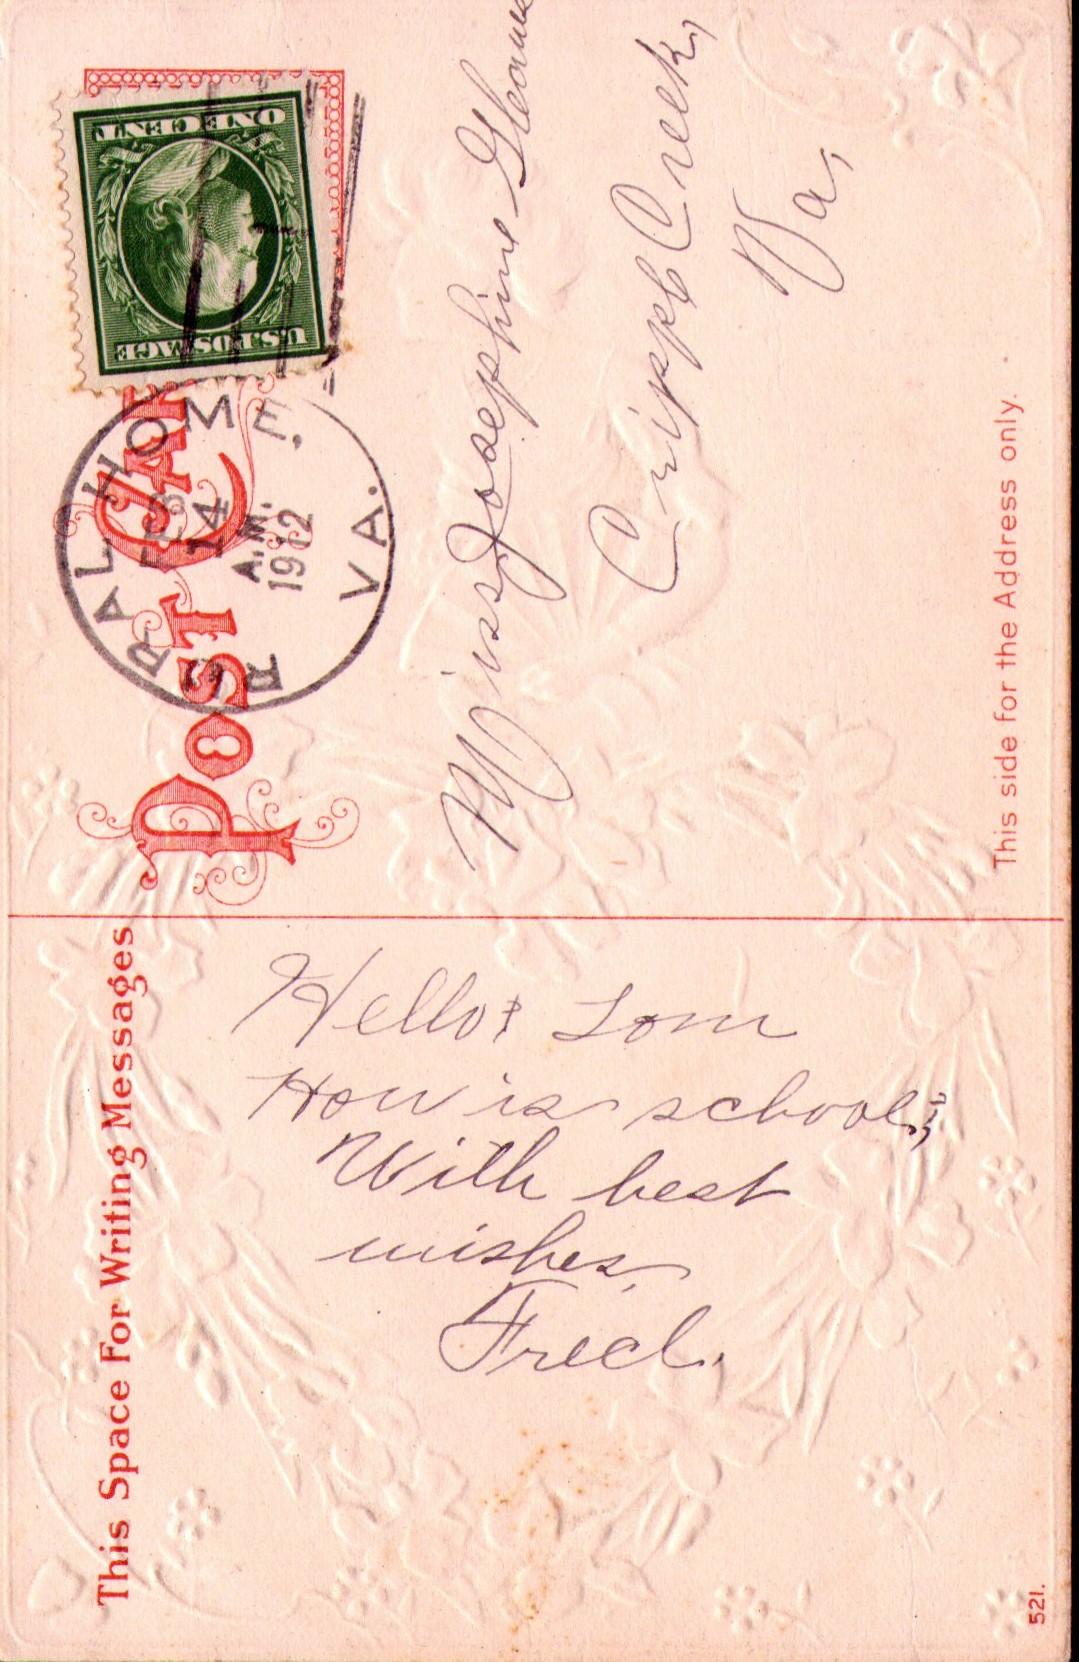 This Space For Writing Messages
POST CAR
U.S. POSTAGE
ONE CENT
RURAL HOME,
FEB
14
A.M.
1912
VA.
Hello! Tom
How is school,
With best
wishes,
Fred.
Miss Josephine
Cripple Creek,
Va,
This side for the Address only.
521.